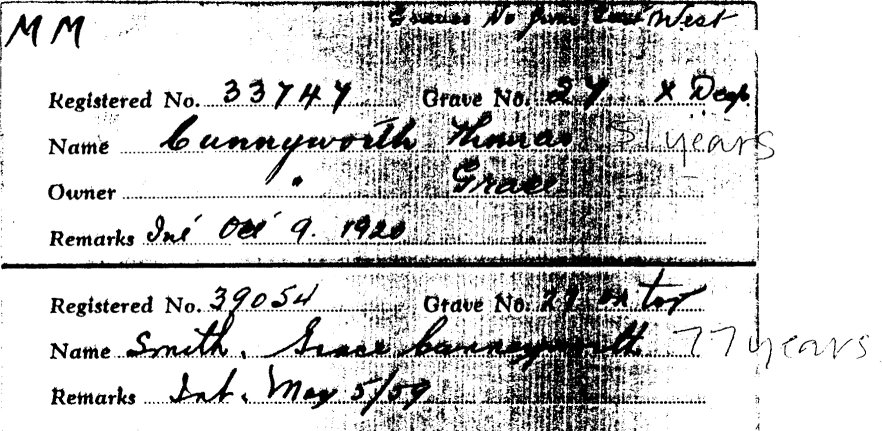 M M West
Registered No. 33747 Grave No. 27 x Deep
Name Cunnyworth Thomas 51 years
Owner " Grace
Remarks Int Oct 9. 1920
Registered No. 39054 Grave No. 27 on top
Name Smith. Grace Cunnyworth 77 years
Remarks Int. May 5/59